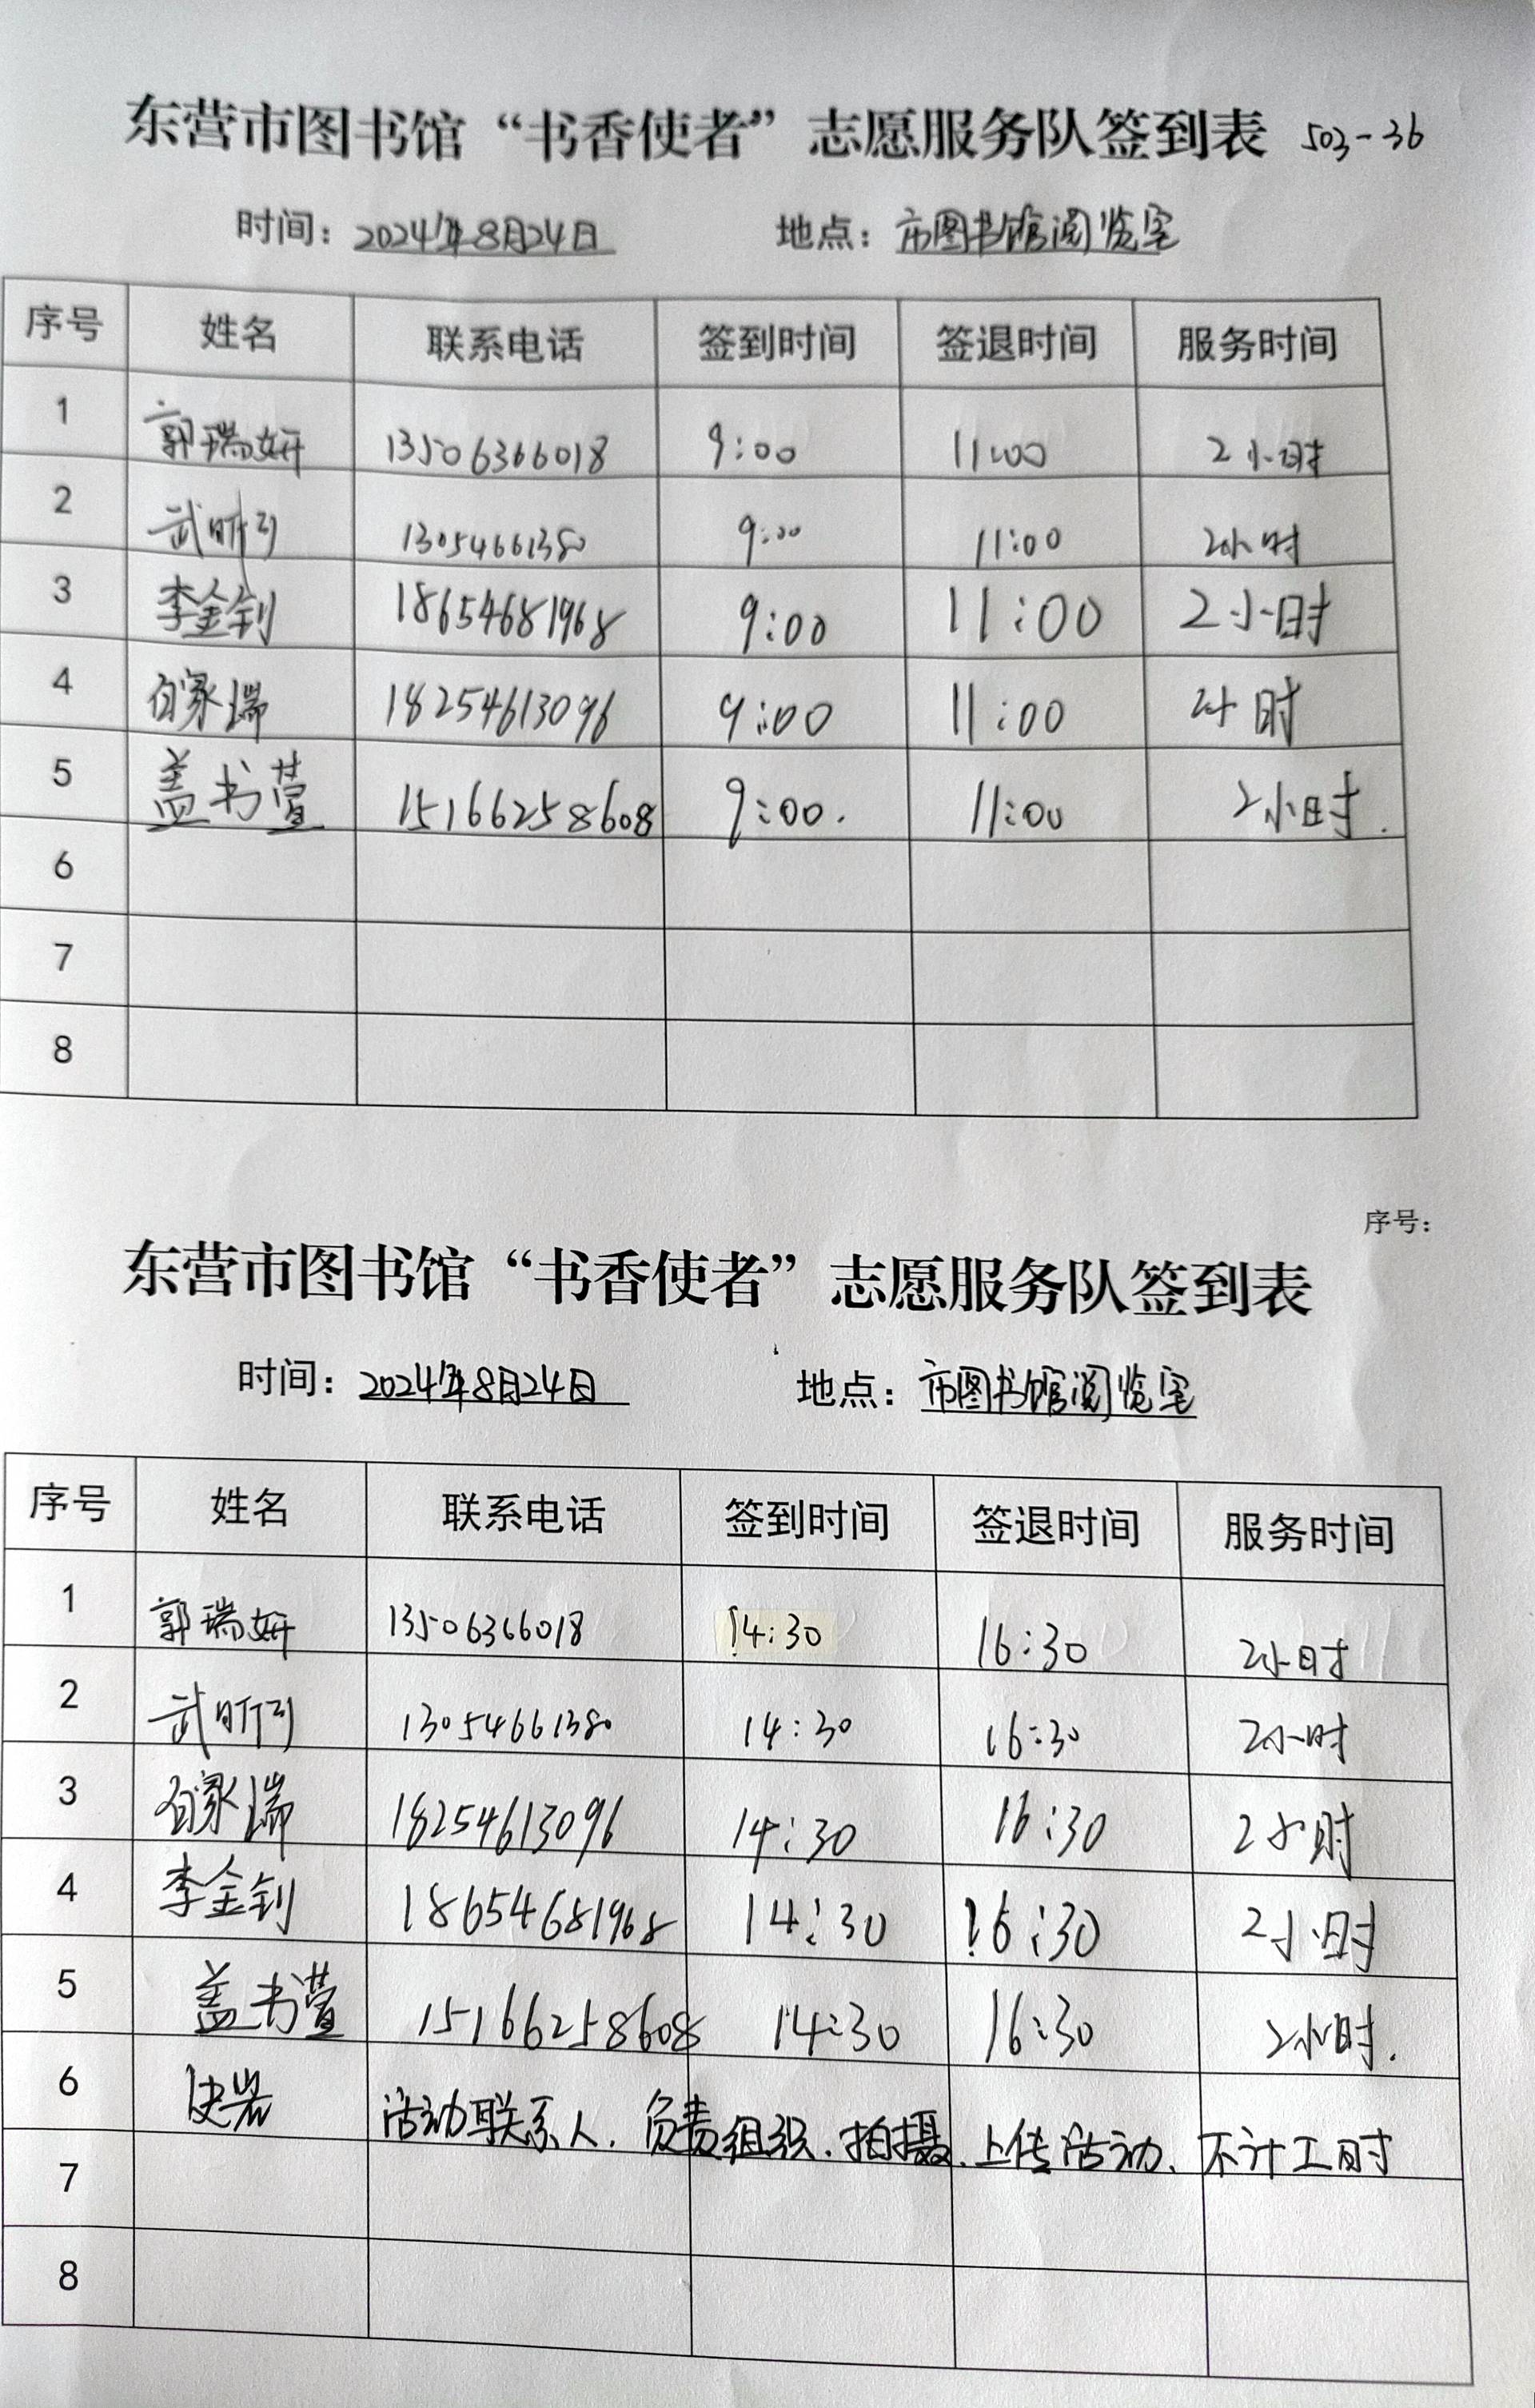 东营市图书馆“书香使者”志愿服务队签到表 503-36
时间：2024年8月24日 地点：市图书馆阅览室
序号 姓名 联系电话 签到时间 签退时间 服务时间
1 郭瑞妍 13506366018 9:00 11:00 2小时
2 武昕 13054661380 9:00 11:00 2小时
3 李金钊 18654681968 9:00 11:00 2小时
4 家瑞 18254613096 9:00 11:00 2小时
5 盖书萱 15166258608 9:00. 11:00 2小时.
6
7
8
序号：
东营市图书馆“书香使者”志愿服务队签到表
时间：2024年8月24日 地点：市图书馆阅览室
序号 姓名 联系电话 签到时间 签退时间 服务时间
1 郭瑞妍 13506366018 14:30 16:30 2小时
2 武昕 13054661380 14:30 16:30 2小时
3 家瑞 18254613096 14:30 16:30 2小时
4 李金钊 18654681968 14:30 16:30 2小时
5 盖书萱 15166258608 14:30 16:30 2小时.
6 活动联系人.负责组织.拍摄.上传活动、不计工时
7
8